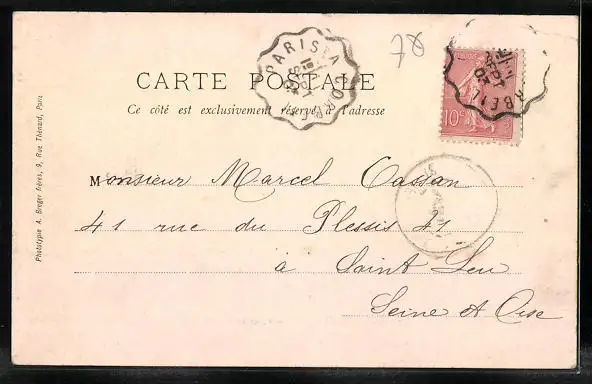 78
CARTE POSTALE
Ce côté est exclusivement réservé à l'adresse
10c
Monsieur Marcel Cassan
41 rue du Plessis 41
à Saint Leu
Seine et Oise
Phototypie A. Berger frères, 9, Rue Thénard, Paris
PARIS A CORBEIL